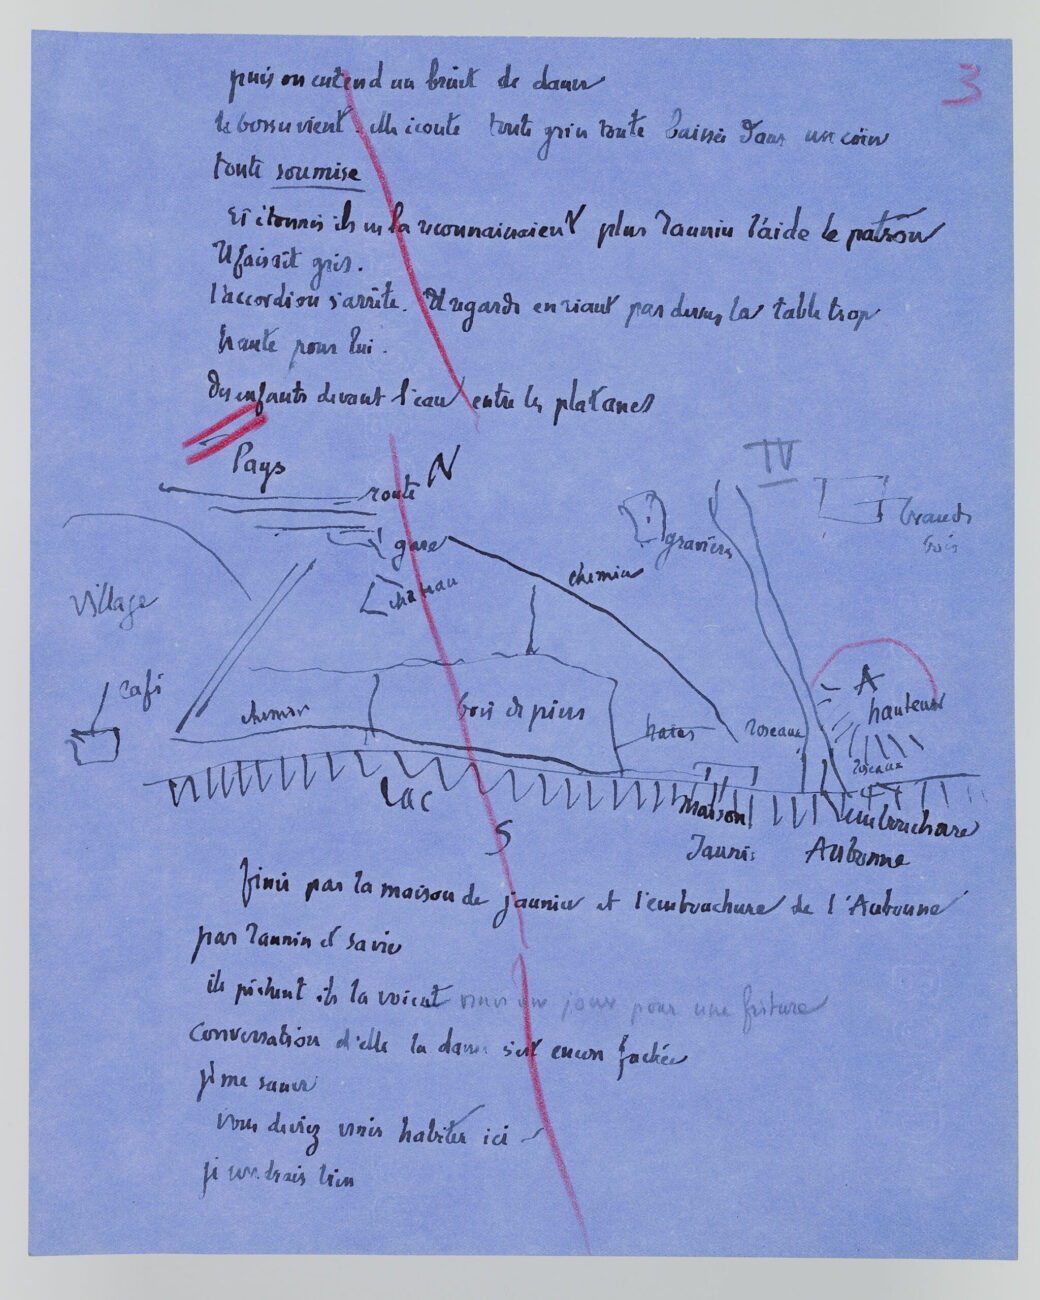 3
puis on entend un bruit de danse
le bossu vient. elle écoute toute grise toute baissée dans un coin
toute soumise
Et étonnés ils ne la reconnaissaient plus l'aide le patron
Il faisait gris.
l'accordéon s'arrête. Il regarde en riant par dessus la table trop
haute pour lui.
Des enfants devant l'eau entre les platanes
Pays
N
IV
route
gare
graviers
grands
bois
chemin
château
village
café
A
hauteur
chemin
bois de pins
roseaux
roseaux
Lac
maison
embouchure
S
Aubonne
finir par la maison de jaunin et l'embouchure de l'Aubonne
par et sa vie
ils pêchent ils la voient venir un jour pour une friture
Conversation d'elle la dame s'est encore fachée
j'me sauve
vous devriez venir habiter ici –
je voudrais bien